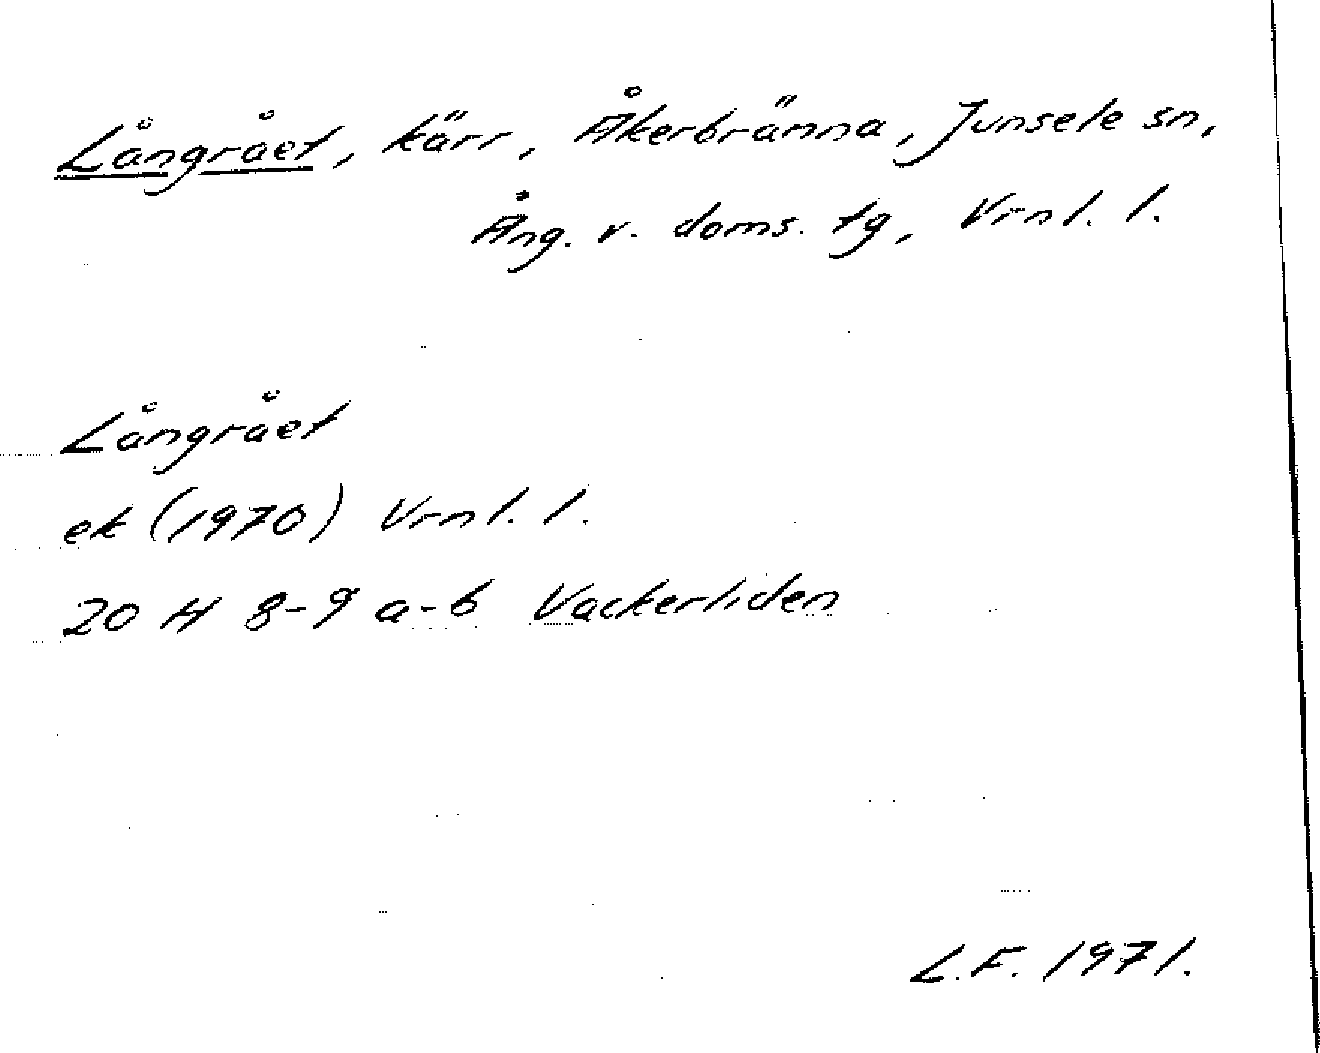 Långrået, kärr, Åkerbränna, Junsele sn,
Ång. v. doms. tg, Vrnl. l.
Långrået
ek (1970) Vrnl. l.
20 H 8-9 a-b Vackerliden
L.F. 1971.